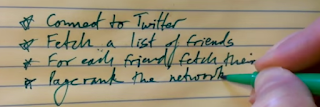 * Connect to Twitter
* Fetch a list of friends
* For each friend, fetch their
* Pagerank the network